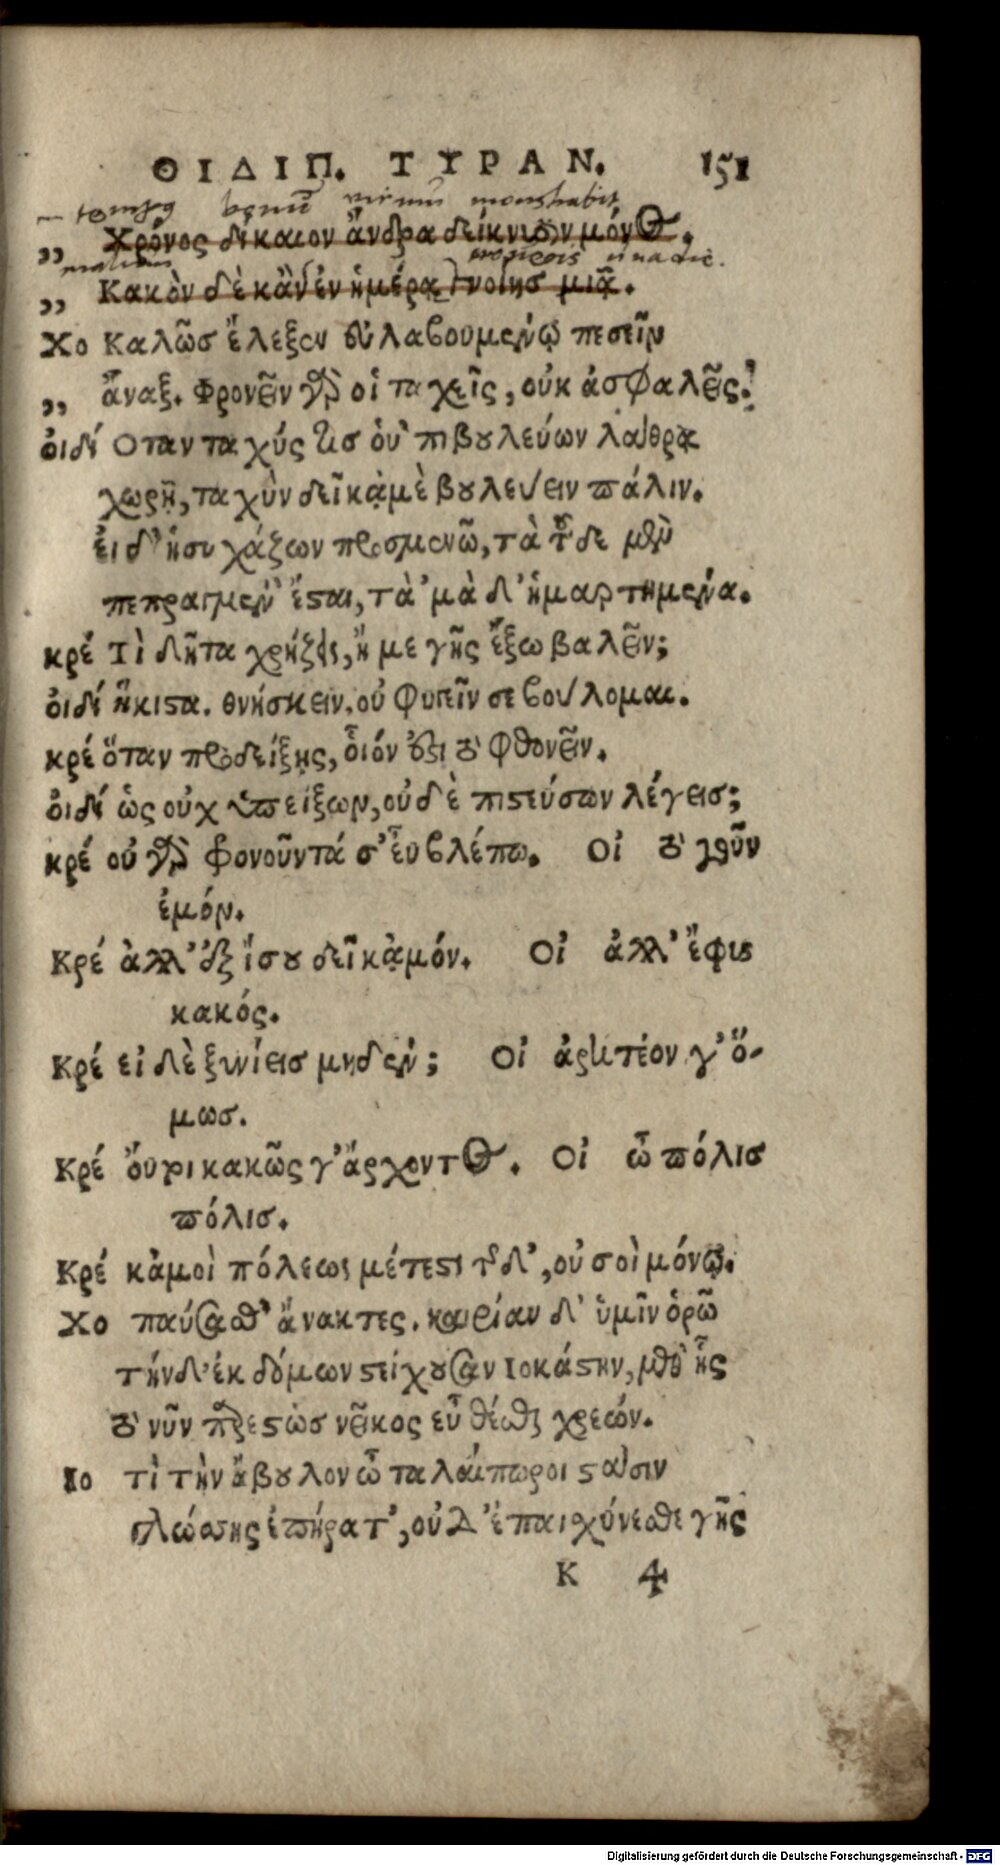 ΟΙΔΙΠ. ΤΥΡΑΝ. 151
tempus bonum virum monstrabit
„ Χρόνος δίκαιον ἄνδρα δείκνυσιν μόνος.
malum unadie.
„ Κακὸν δὲ κἂν ἐν ἡμέρᾳ γνοίησ μιᾷ.
Χο Καλῶσ ἔλεξεν εὐλαβουμένῳ πεσεῖν
„ ἄναξ. Φρονεῖν γὰρ οἱ ταχεῖς, οὐκ ἀσφαλεῖς.
ὀιδί Οταν ταχύς τισ ὁυ ̓πιβουλεύων λάθρᾳ
χωρῇ, ταχὺν δεῖ κᾀμὲ βουλεύειν πάλιν.
ἐι δ' ἡσυχάζων προσμενῶ, τὰ τοῦδε μὲν
πεπραγμέν' ἔσται, τὰ 'μὰ δ' ἡμαρτημένα.
κρέ τὶ δῆτα χρήζεις, ἤ με γῆς ἔξω βαλεῖν;
ὀιδί ἥκιστα. θνήσκειν. οὐ φυγεῖν σε βούλομαι.
κρέ ὅταν προδείξῃς, ὁῖόν ἐστι τὸ φθονεῖν.
ὀιδί ὡς οὐχ ὑπείξων, οὐδὲ πιστεύσων λέγεισ;
κρέ οὐ γὰρ φρονοῦντά σ' εὖ βλέπω. Οἰ τὸ γοῦν
ἐμόν.
Κρέ ἀλλ' ἐξ ἴσου δεῖ κᾀμόν. Οἰ ἀλλ' ἔφυς
κακός.
Κρέ εἰ δὲ ξυνίεισ μηδέν; Οἰ ἀρκτέον γ' ὅ-
μωσ.
Κρέ ὄυτι κακῶς γ' ἄρχοντος. Οἰ ὦ πόλισ
πόλισ.
Κρέ κἀμοὶ πόλεως μέτεστι τῆσδ', οὐ σοὶ μόνῳ.
Χο παύσασθ' ἄνακτες. καιρίαν δ' ὑμῖν ὁρῶ
τήνδ' ἐκ δόμων στείχουσαν Ιοκάστην, μεθ' ἧς
τὸ νῦν παρεστὼσ νεῖκος εὖ θέσθαι χρεών.
Ιο τὶ τὴν ἄβουλον ὦ ταλάιπωροι στάσιν
γλώσσης ἐπήρατ', οὐδ' ἐπαισχύνεσθε γῆς
Κ 4
Digitalisierung gefördert durch die Deutsche Forschungsgemeinschaft - DFG